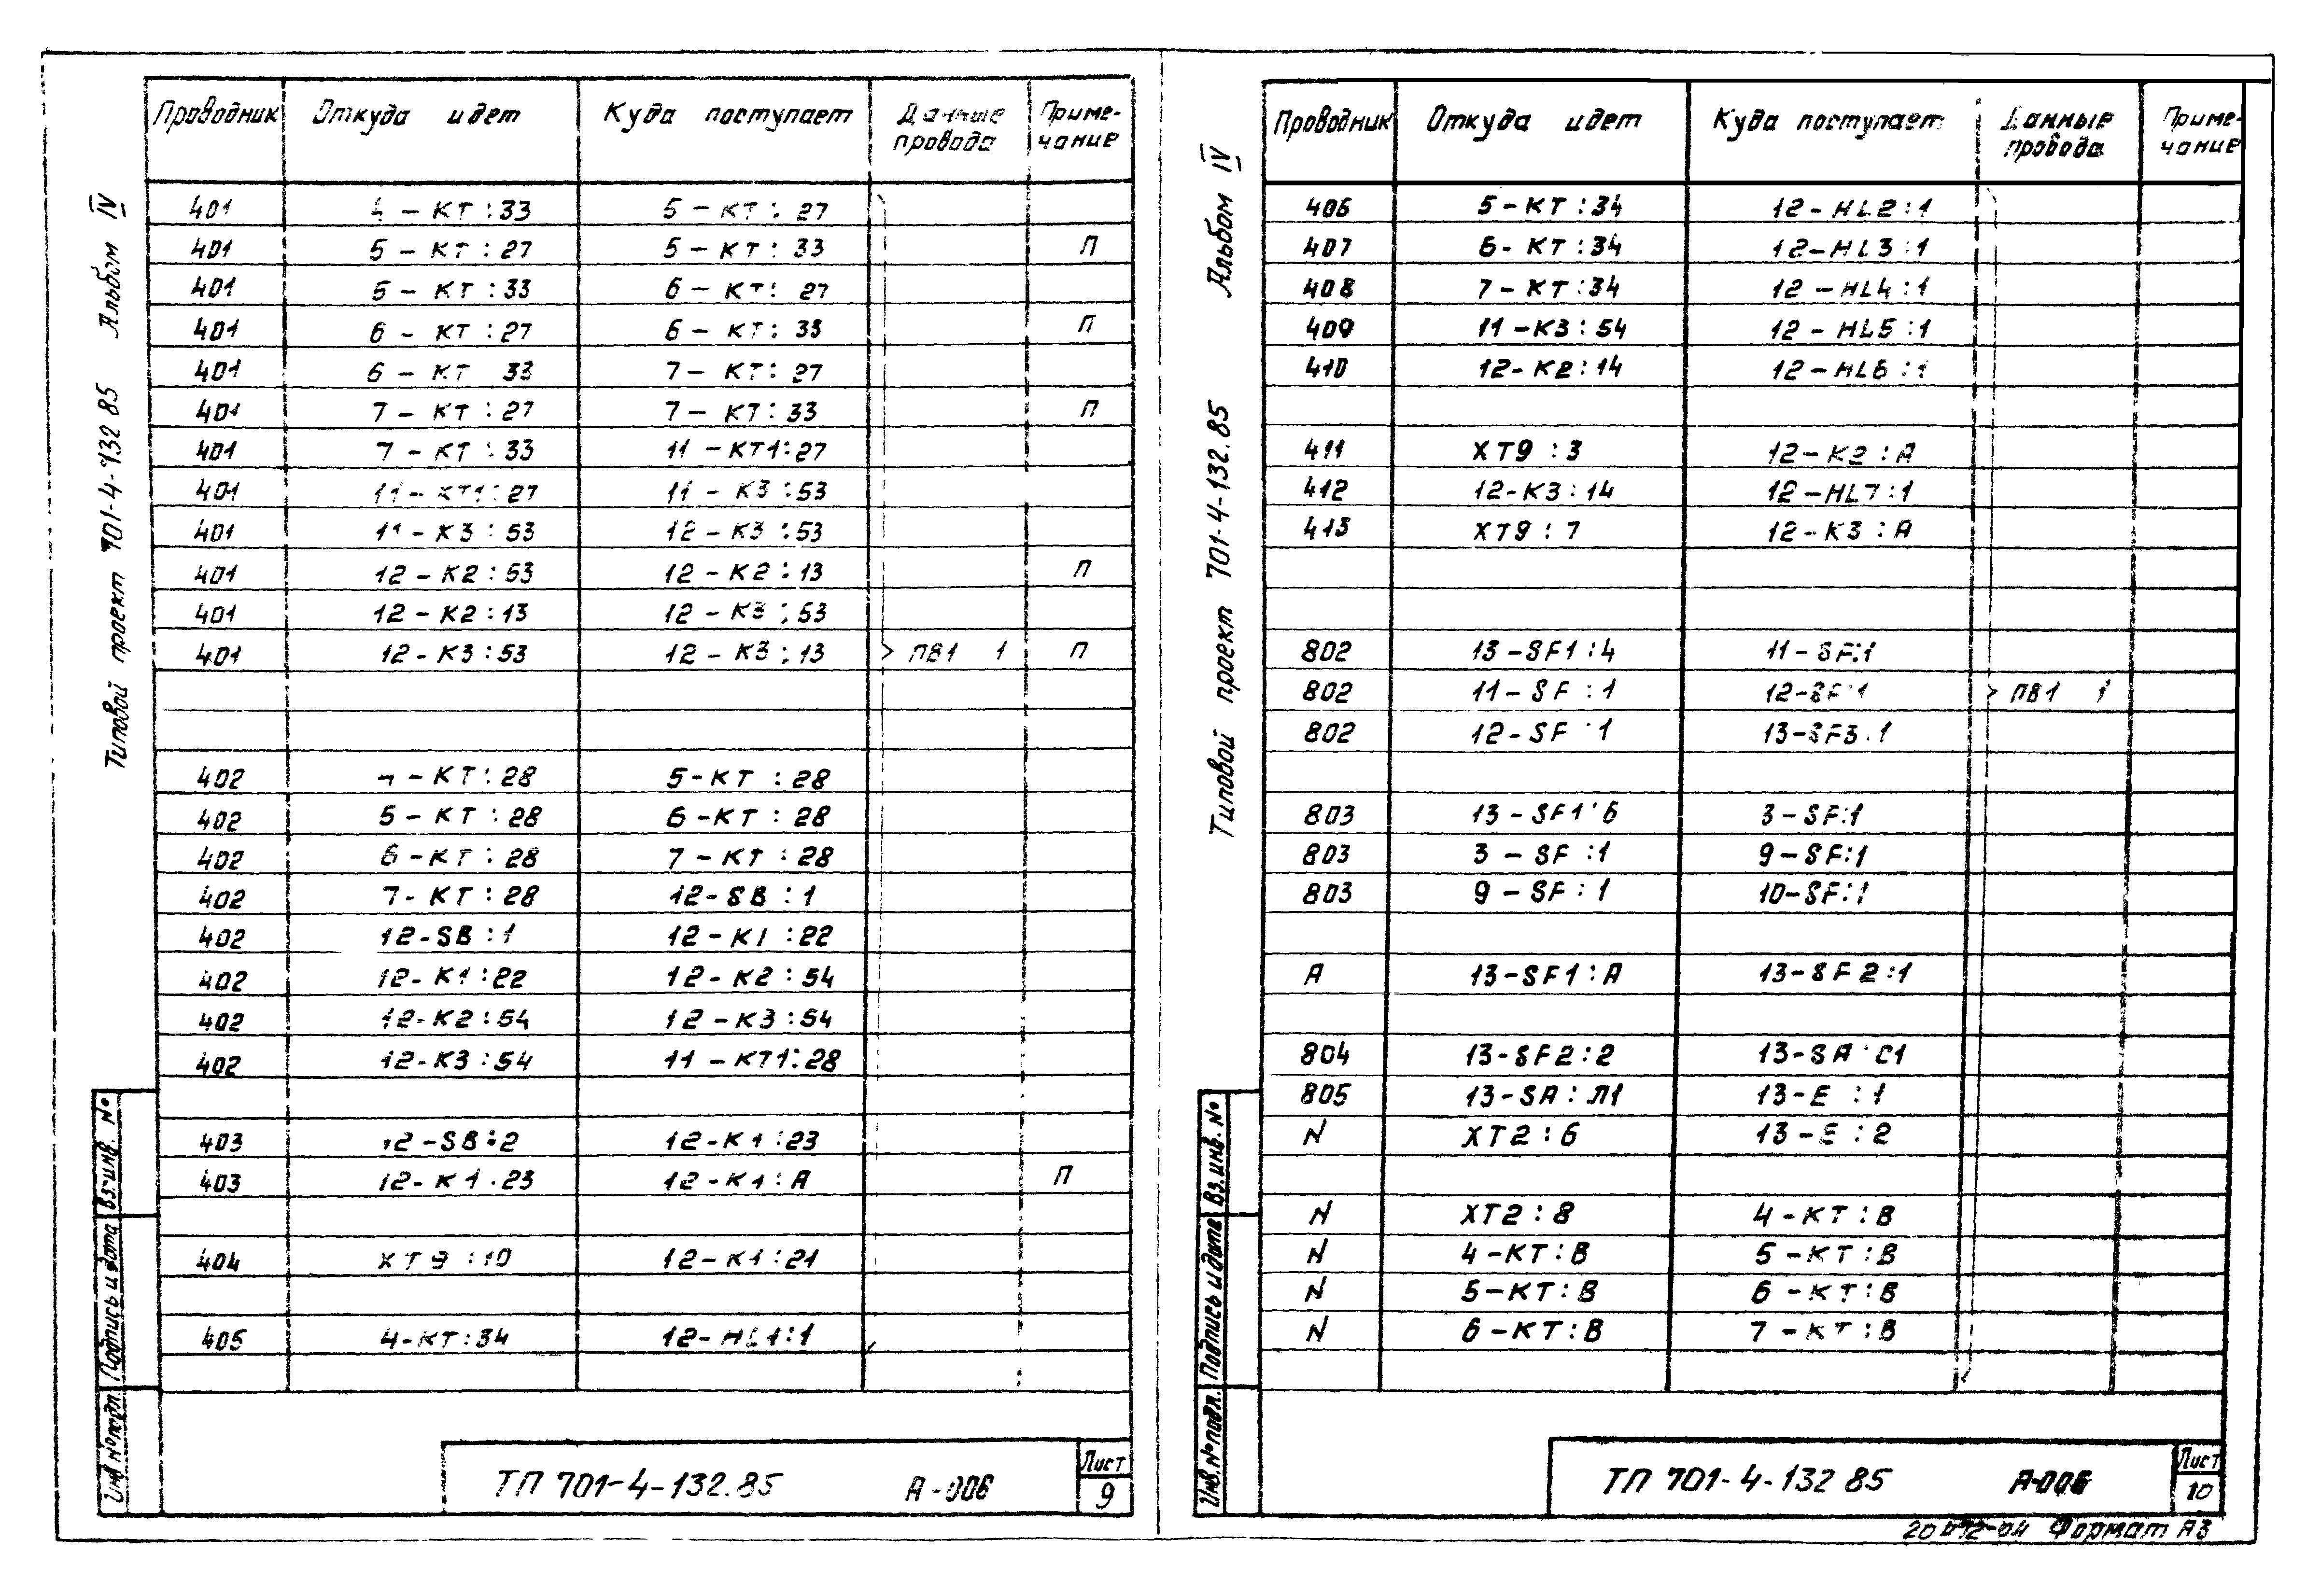 Типовой проект 701-4-132 85 Альбом IV
Проводник Откуда идет Куда поступает Данные провода Приме-чание
401 4 - КТ : 33 5 - КТ : 27
401 5 - КТ : 27 5 - КТ : 33 П
401 5 - КТ : 33 6 - КТ : 27
401 6 - КТ : 27 6 - КТ : 33 П
401 6 - КТ 33 7 - КТ : 27
401 7 - КТ : 27 7 - КТ : 33 П
401 7 - КТ : 33 11 - КТ1 : 27
401 11 - КТ1 : 27 11 - К3 : 53
401 11 - К3 : 53 12 - К3 : 53
401 12 - К2 : 53 12 - К2 : 13 П
401 12 - К2 : 13 12 - К3 : 53
401 12 - К3 : 53 12 - К3 : 13 ПВ1 1 П
402 4 - КТ : 28 5 - КТ : 28
402 5 - КТ : 28 6 - КТ : 28
402 6 - КТ : 28 7 - КТ : 28
402 7 - КТ : 28 12 - SB : 1
402 12 - SB : 1 12 - К1 : 22
402 12 - К1 : 22 12 - К2 : 54
402 12 - К2 : 54 12 - К3 : 54
402 12 - К3 : 54 11 - КТ1 : 28
403 12 - SB : 2 12 - К1 : 23
403 12 - К1 : 23 12 - К1 : А П
404 ХТ9 : 10 12 - К1 : 21
405 4 - КТ : 34 12 - HL1 : 1
Инв № подл. Подпись и дата Вз. инв. №
ТП 701-4-132.85 А-006 Лист 9
Типовой проект 701-4-132.85 Альбом IV
Проводник Откуда идет Куда поступает Данные провода Приме-чание
406 5 - КТ : 34 12 - HL2 : 1
407 6 - КТ : 34 12 - HL3 : 1
408 7 - КТ : 34 12 - HL4 : 1
409 11 - К3 : 54 12 - HL5 : 1
410 12 - К2 : 14 12 - HL6 : 1
411 ХТ9 : 3 12 - К2 : А
412 12 - К3 : 14 12 - HL7 : 1
413 ХТ9 : 7 12 - К3 : А
802 13 - SF1 : 4 11 - SF : 1
802 11 - SF : 1 12 - SF : 1 ПВ1 1
802 12 - SF : 1 13 - SF3 : 1
803 13 - SF1 : 6 3 - SF : 1
803 3 - SF : 1 9 - SF : 1
803 9 - SF : 1 10 - SF : 1
А 13 - SF1 : А 13 - SF2 : 1
804 13 - SF2 : 2 13 - SA : С1
805 13 - SA : Л1 13 - Е : 1
N ХТ2 : 6 13 - Е : 2
N ХТ2 : 8 4 - КТ : В
N 4 - КТ : В 5 - КТ : В
N 5 - КТ : В 6 - КТ : В
N 6 - КТ : В 7 - КТ : В
Инв. № подл. Подпись и дата Вз. инв. №
ТП 701-4-132 85 А-006 Лист 10
Формат А3